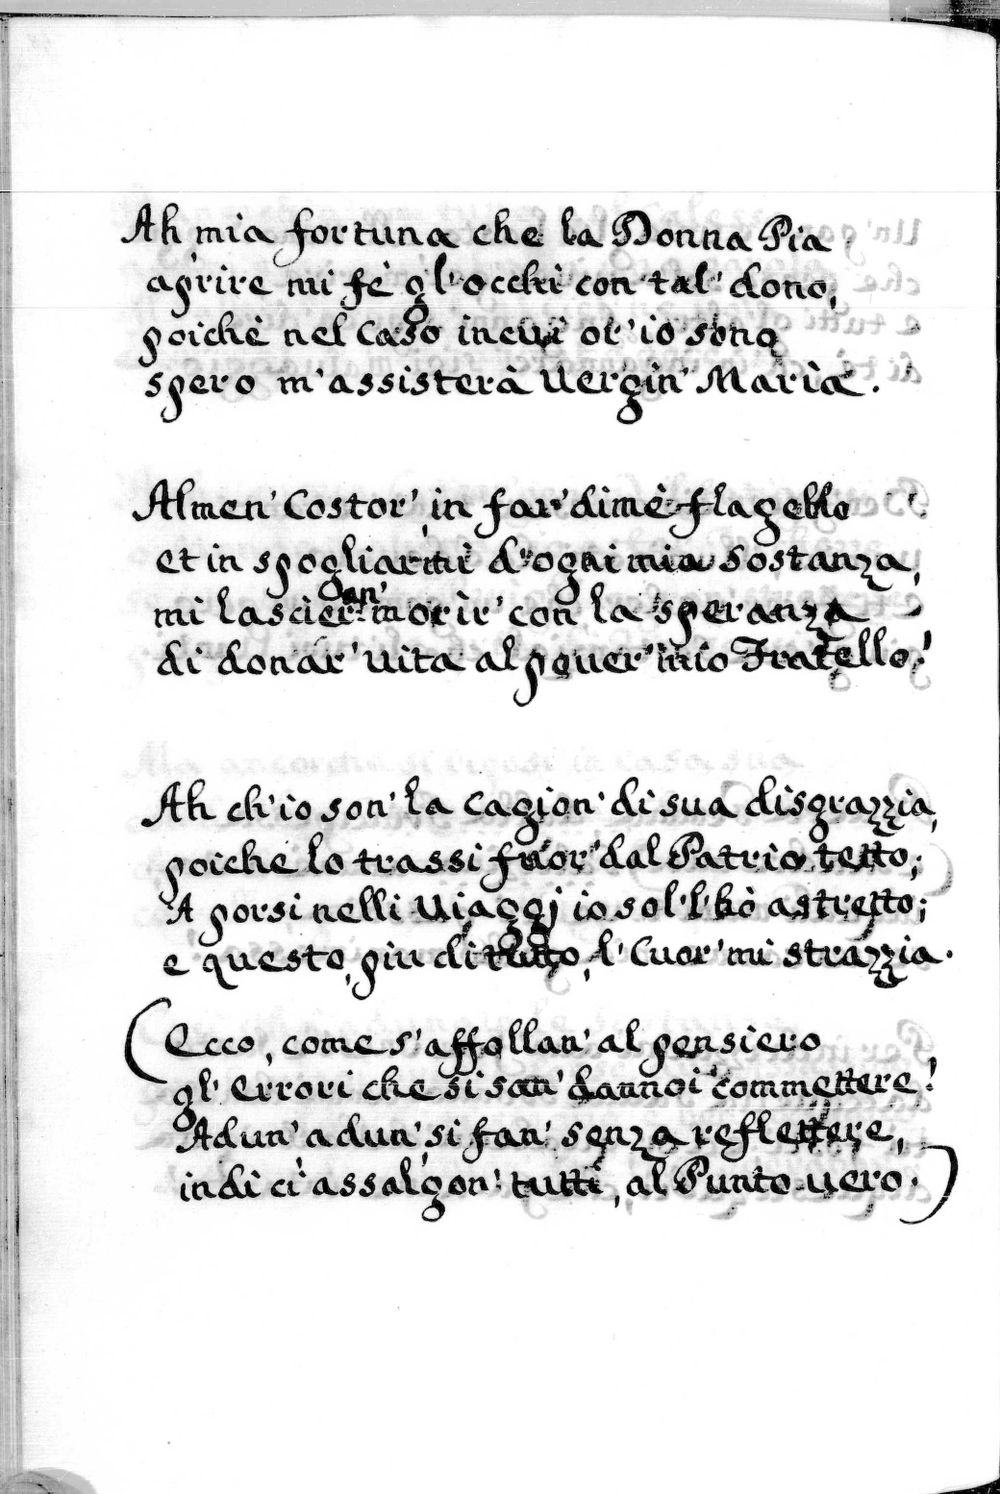 Ah mia fortuna che la Donna Pia
aprire mi fè gl' occhi con tal' dono,
poichè nel caso in cui or' io sono
spero m' assisterà Vergin' Maria.
Almen' Costor', in far' di mè flagello
et in spogliarmi d' ogni mia sostanza,
mi lascieran' morir' con la speranza
di donar' vita al pover' mio Fratello!
Ah ch' io son' la cagion' di sua disgrazzia,
poiche lo trassi fuor' dal Patrio tetto;
A porsi nelli Viaggj io sol' l' hò astretto;
e questo, piu di tutto, l' Cuor' mi strazzia.
(Ecco, come s' affollan' al pensiero
gl' Errori che si san' da noi commettere!
Ad un', ad un', si fan' senza reflettere,
indi ci assalgon' tutti, al Punto vero.)